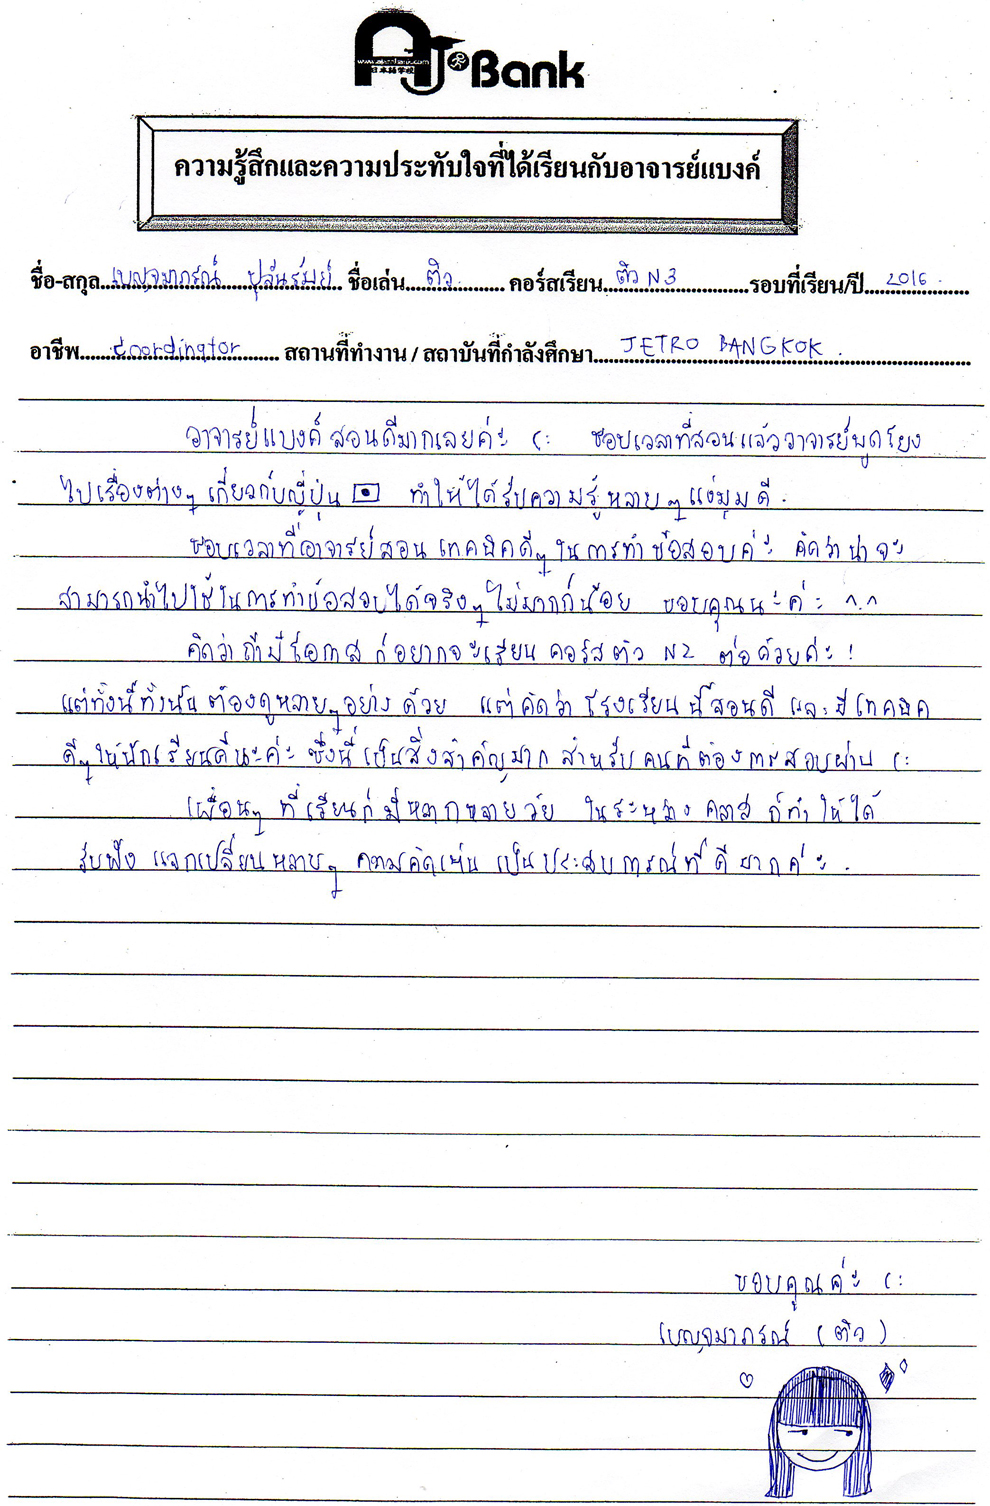 AJ Bank
www.aj-bank.com
日本語学校
ความรู้สึกและความประทับใจที่ได้เรียนกับอาจารย์แบงค์
ชื่อ-สกุล เบญจมาภรณ์ ปุลันรัมย์ ชื่อเล่น ติว คอร์สเรียน ติว N3 รอบที่เรียน/ปี 2016
อาชีพ Coordinator สถานที่ทำงาน / สถาบันที่กำลังศึกษา JETRO BANGKOK
อาจารย์แบงค์ สอนดีมากเลยค่ะ (: ชอบเวลาที่สอนแล้วอาจารย์พูดโยง
ไปเรื่องต่างๆ เกี่ยวกับญี่ปุ่น ทำให้ได้รับความรู้หลายๆ แง่มุมดี.
ชอบเวลาที่อาจารย์สอน เทคนิคดีๆ ในการทำข้อสอบค่ะ คิดว่าน่าจะ
สามารถนำไปใช้ในการทำข้อสอบได้จริงๆ ไม่มากก็น้อย ขอบคุณนะค่ะ ^.^
คิดว่าถ้ามีโอกาส ก็อยากจะเรียน คอร์สติว N2 ต่อด้วยค่ะ!
แต่ทั้งนี้ทั้งนั้น ต้องดูหลายๆ อย่าง ด้วย แต่คิดว่าโรงเรียนนี้สอนดี และมีเทคนิค
ดีๆ ให้นักเรียนดีนะค่ะ ซึ่งนี่เป็นสิ่งสำคัญมาก สำหรับคนที่ต้องการสอบผ่าน (:
เพื่อนๆ ที่เรียนก็มีหลากหลายวัย ในระหว่าง คลาส ก็ทำให้ได้
รับฟัง แลกเปลี่ยนหลายๆ ความคิดเห็น เป็นประสบการณ์ที่ดีมากค่ะ.
ขอบคุณค่ะ (:
เบญจมาภรณ์ (ติว)